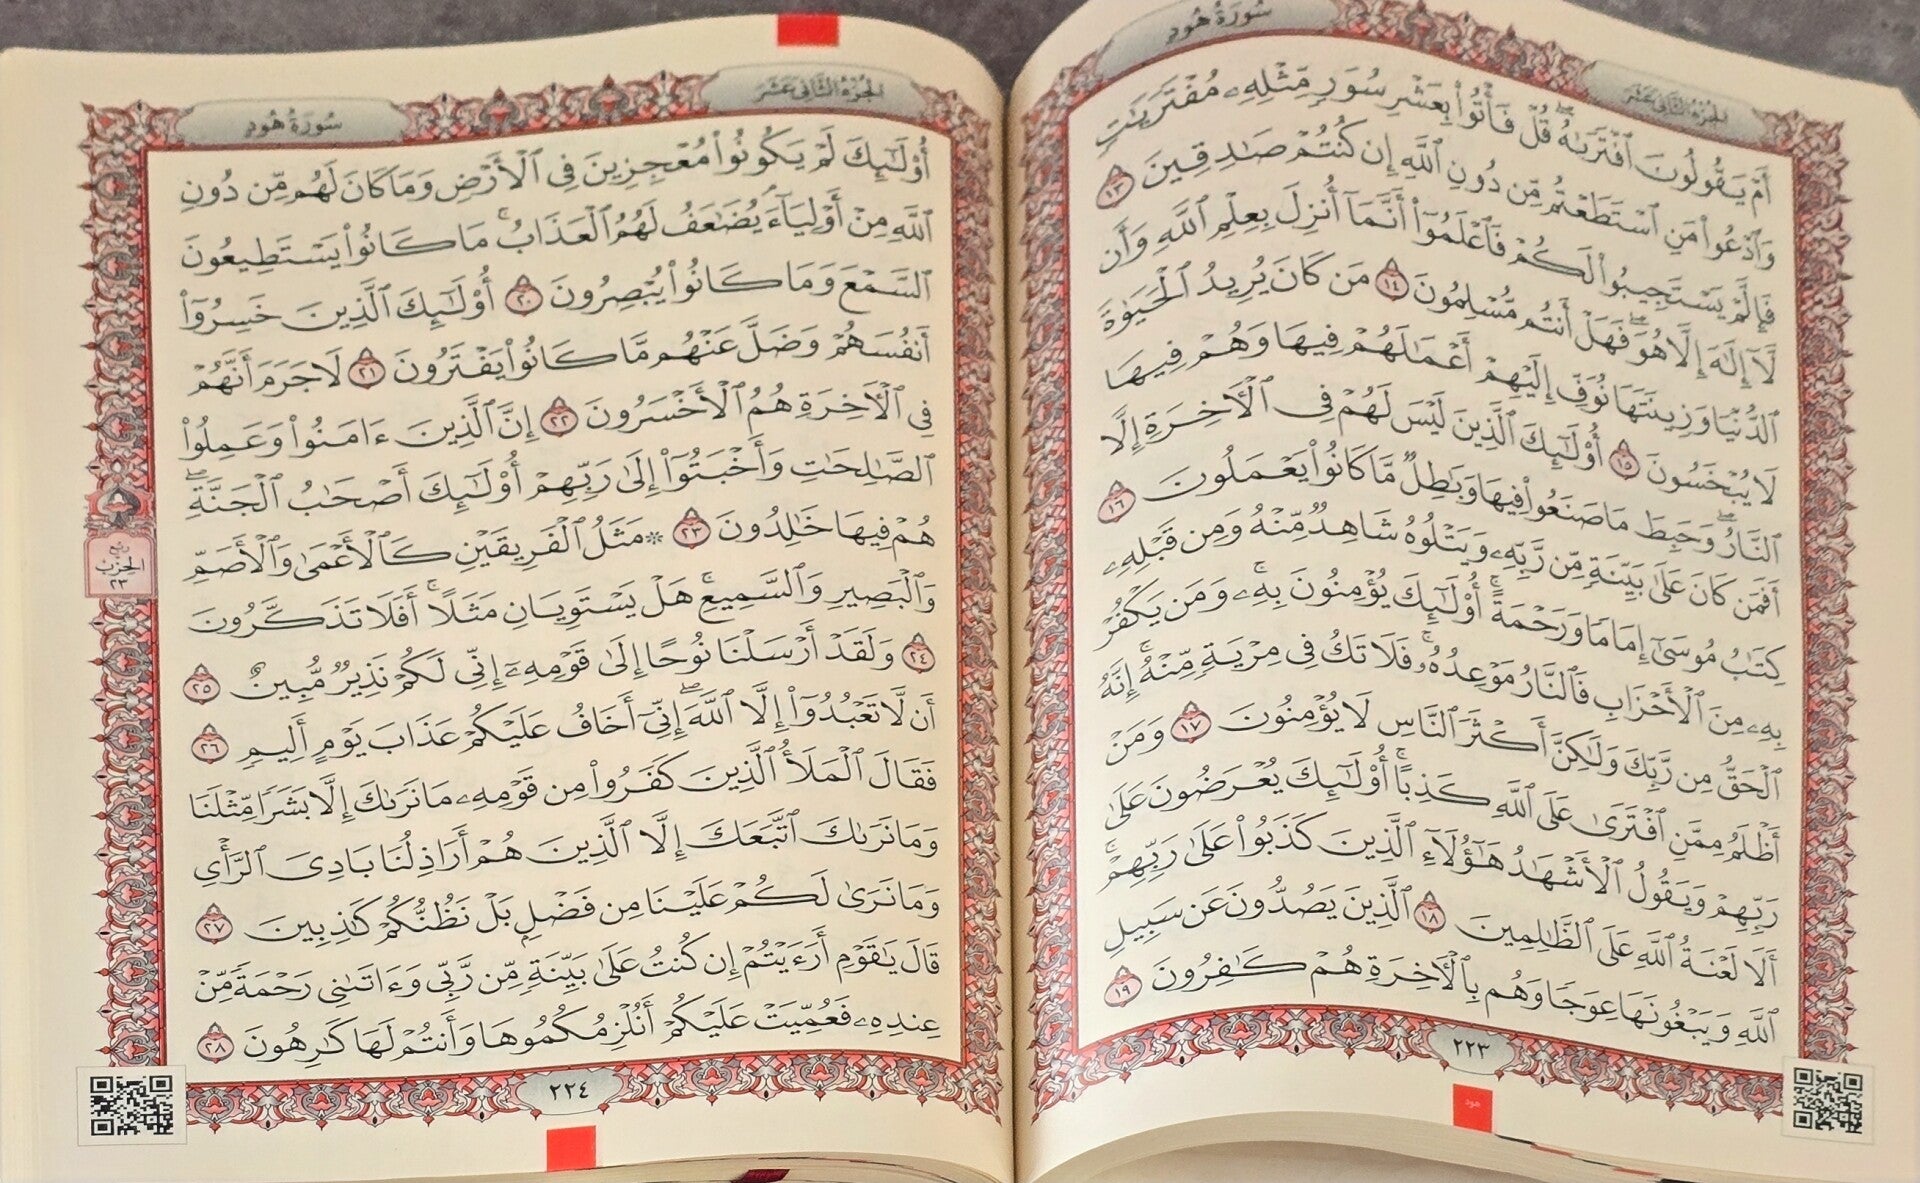 سُورَةُ هُودٍ
الجُزْءُ الثَّانِي عَشَرَ
أَمْ يَقُولُونَ ٱفْتَرَىٰهُۖ قُلْ فَأْتُوا۟ بِعَشْرِ سُوَرٍ مِّثْلِهِۦ مُفْتَرَيَٰتٍ
وَٱدْعُوا۟ مَنِ ٱسْتَطَعْتُم مِّن دُونِ ٱللَّهِ إِن كُنتُمْ صَٰدِقِينَ ١٣
فَإِلَّمْ يَسْتَجِيبُوا۟ لَكُمْ فَٱعْلَمُوٓا۟ أَنَّمَآ أُنزِلَ بِعِلْمِ ٱللَّهِ وَأَن
لَّآ إِلَٰهَ إِلَّا هُوَۖ فَهَلْ أَنتُم مُّسْلِمُونَ ١٤ مَن كَانَ يُرِيدُ ٱلْحَيَوٰةَ
ٱلدُّنْيَا وَزِينَتَهَا نُوَفِّ إِلَيْهِمْ أَعْمَٰلَهُمْ فِيهَا وَهُمْ فِيهَا
لَا يُبْخَسُونَ ١٥ أُو۟لَٰٓئِكَ ٱلَّذِينَ لَيْسَ لَهُمْ فِى ٱلْءَاخِرَةِ إِلَّا
ٱلنَّارُۖ وَحَبِطَ مَا صَنَعُوا۟ فِيهَا وَبَٰطِلٌ مَّا كَانُوا۟ يَعْمَلُونَ ١٦
أَفَمَن كَانَ عَلَىٰ بَيِّنَةٍ مِّن رَّبِّهِۦ وَيَتْلُوهُ شَاهِدٌ مِّنْهُ وَمِن قَبْلِهِۦ
كِتَٰبُ مُوسَىٰٓ إِمَامًا وَرَحْمَةًۚ أُو۟لَٰٓئِكَ يُؤْمِنُونَ بِهِۦۚ وَمَن يَكْفُرْ
بِهِۦ مِنَ ٱلْأَحْزَابِ فَٱلنَّارُ مَوْعِدُهُۥۚ فَلَا تَكُ فِى مِرْيَةٍ مِّنْهُۚ إِنَّهُ
ٱلْحَقُّ مِن رَّبِّكَ وَلَٰكِنَّ أَكْثَرَ ٱلنَّاسِ لَا يُؤْمِنُونَ ١٧ وَمَنْ
أَظْلَمُ مِمَّنِ ٱفْتَرَىٰ عَلَى ٱللَّهِ كَذِبًاۚ أُو۟لَٰٓئِكَ يُعْرَضُونَ عَلَىٰ
رَبِّهِمْ وَيَقُولُ ٱلْأَشْهَٰدُ هَٰٓؤُلَآءِ ٱلَّذِينَ كَذَبُوا۟ عَلَىٰ رَبِّهِمْۚ
أَلَا لَعْنَةُ ٱللَّهِ عَلَى ٱلظَّٰلِمِينَ ١٨ ٱلَّذِينَ يَصُدُّونَ عَن سَبِيلِ
ٱللَّهِ وَيَبْغُونَهَا عِوَجًا وَهُم بِٱلْءَاخِرَةِ هُمْ كَٰفِرُونَ ١٩
٢٢٣
هود
الجُزْءُ الثَّانِي عَشَرَ
سُورَةُ هُودٍ
أُو۟لَٰٓئِكَ لَمْ يَكُونُوا۟ مُعْجِزِينَ فِى ٱلْأَرْضِ وَمَا كَانَ لَهُم مِّن دُونِ
ٱللَّهِ مِنْ أَوْلِيَآءَۘ يُضَٰعَفُ لَهُمُ ٱلْعَذَابُۚ مَا كَانُوا۟ يَسْتَطِيعُونَ
ٱلسَّمْعَ وَمَا كَانُوا۟ يُبْصِرُونَ ٢٠ أُو۟لَٰٓئِكَ ٱلَّذِينَ خَسِرُوٓا۟
أَنفُسَهُمْ وَضَلَّ عَنْهُم مَّا كَانُوا۟ يَفْتَرُونَ ٢١ لَا جَرَمَ أَنَّهُمْ
فِى ٱلْءَاخِرَةِ هُمُ ٱلْأَخْسَرُونَ ٢٢ إِنَّ ٱلَّذِينَ ءَامَنُوا۟ وَعَمِلُوا۟
ٱلصَّٰلِحَٰتِ وَأَخْبَتُوٓا۟ إِلَىٰ رَبِّهِمْ أُو۟لَٰٓئِكَ أَصْحَٰبُ ٱلْجَنَّةِۖ
هُمْ فِيهَا خَٰلِدُونَ ٢٣ ۞ مَثَلُ ٱلْفَرِيقَيْنِ كَٱلْأَعْمَىٰ وَٱلْأَصَمِّ
وَٱلْبَصِيرِ وَٱلسَّمِيعِۚ هَلْ يَسْتَوِيَانِ مَثَلًاۚ أَفَلَا تَذَكَّرُونَ
٢٤ وَلَقَدْ أَرْسَلْنَا نُوحًا إِلَىٰ قَوْمِهِۦٓ إِنِّى لَكُمْ نَذِيرٌ مُّبِينٌ ٢٥
أَن لَّا تَعْبُدُوٓا۟ إِلَّا ٱللَّهَۖ إِنِّىٓ أَخَافُ عَلَيْكُمْ عَذَابَ يَوْمٍ أَلِيمٍ ٢٦
فَقَالَ ٱلْمَلَأُ ٱلَّذِينَ كَفَرُوا۟ مِن قَوْمِهِۦ مَا نَرَىٰكَ إِلَّا بَشَرًا مِّثْلَنَا
وَمَا نَرَىٰكَ ٱتَّبَعَكَ إِلَّا ٱلَّذِينَ هُمْ أَرَاذِلُنَا بَادِىَ ٱلرَّأْىِ
وَمَا نَرَىٰ لَكُمْ عَلَيْنَا مِن فَضْلٍۭ بَلْ نَظُنُّكُمْ كَٰذِبِينَ ٢٧
قَالَ يَٰقَوْمِ أَرَءَيْتُمْ إِن كُنتُ عَلَىٰ بَيِّنَةٍ مِّن رَّبِّى وَءَاتَىٰنِى رَحْمَةً مِّنْ
عِندِهِۦ فَعُمِّيَتْ عَلَيْكُمْ أَنُلْزِمُكُمُوهَا وَأَنتُمْ لَهَا كَٰرِهُونَ ٢٨
ربع
الحزب
٢٣
٢٢٤